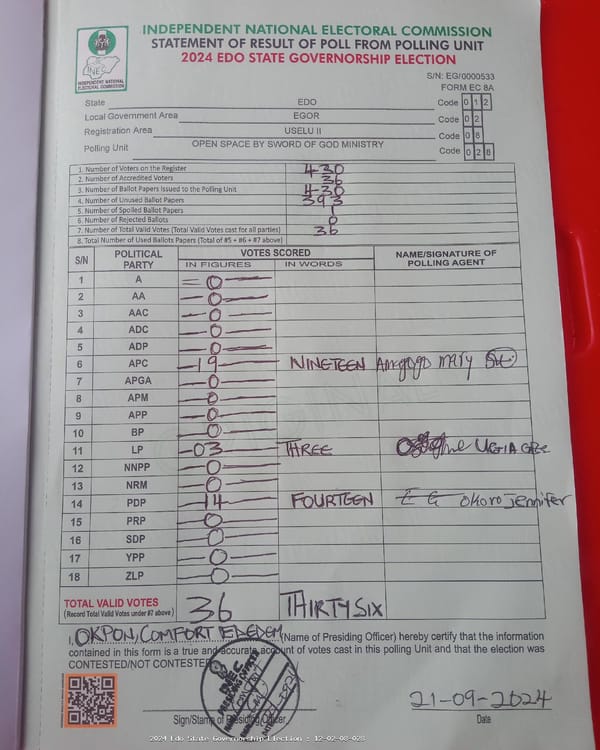 INDEPENDENT NATIONAL ELECTORAL COMMISSION
STATEMENT OF RESULT OF POLL FROM POLLING UNIT
2024 EDO STATE GOVERNORSHIP ELECTION
INEC
INDEPENDENT NATIONAL
ELECTORAL COMMISSION
S/N: EG/0000533
FORM EC 8A
State EDO Code 0 1 2
Local Government Area EGOR Code 0 2
Registration Area USELU II Code 0 8
Polling Unit OPEN SPACE BY SWORD OF GOD MINISTRY Code 0 2 8
1. Number of Voters on the Register 430
2. Number of Accredited Voters 36
3. Number of Ballot Papers Issued to the Polling Unit 430
4. Number of Unused Ballot Papers 393
5. Number of Spoiled Ballot Papers 1
6. Number of Rejected Ballots 0
7. Number of Total Valid Votes (Total Valid Votes cast for all parties) 36
8. Total Number of Used Ballots Papers (Total of #5 + #6 + #7 above)
S/N POLITICAL PARTY VOTES SCORED NAME/SIGNATURE OF POLLING AGENT
IN FIGURES IN WORDS
1 A 0
2 AA 0
3 AAC 0
4 ADC 0
5 ADP 0
6 APC 19 NINETEEN mary
7 APGA 0
8 APM 0
9 APP 0
10 BP 0
11 LP 03 THREE
12 NNPP 0
13 NRM 0
14 PDP 14 FOURTEEN Okoro Jennifer
15 PRP 0
16 SDP 0
17 YPP 0
18 ZLP 0
TOTAL VALID VOTES 36 THIRTY SIX
(Record Total Valid Votes under #7 above)
I, OKPON, COMFORT EDEDEM (Name of Presiding Officer) hereby certify that the information
contained in this form is a true and accurate account of votes cast in this polling Unit and that the election was
CONTESTED/NOT CONTESTED
INEC
PRESIDING OFFICER
21-09-2024
Sign/Stamp of Presiding Officer Date
2024 Edo State Governorship Election : 12-02-08-028